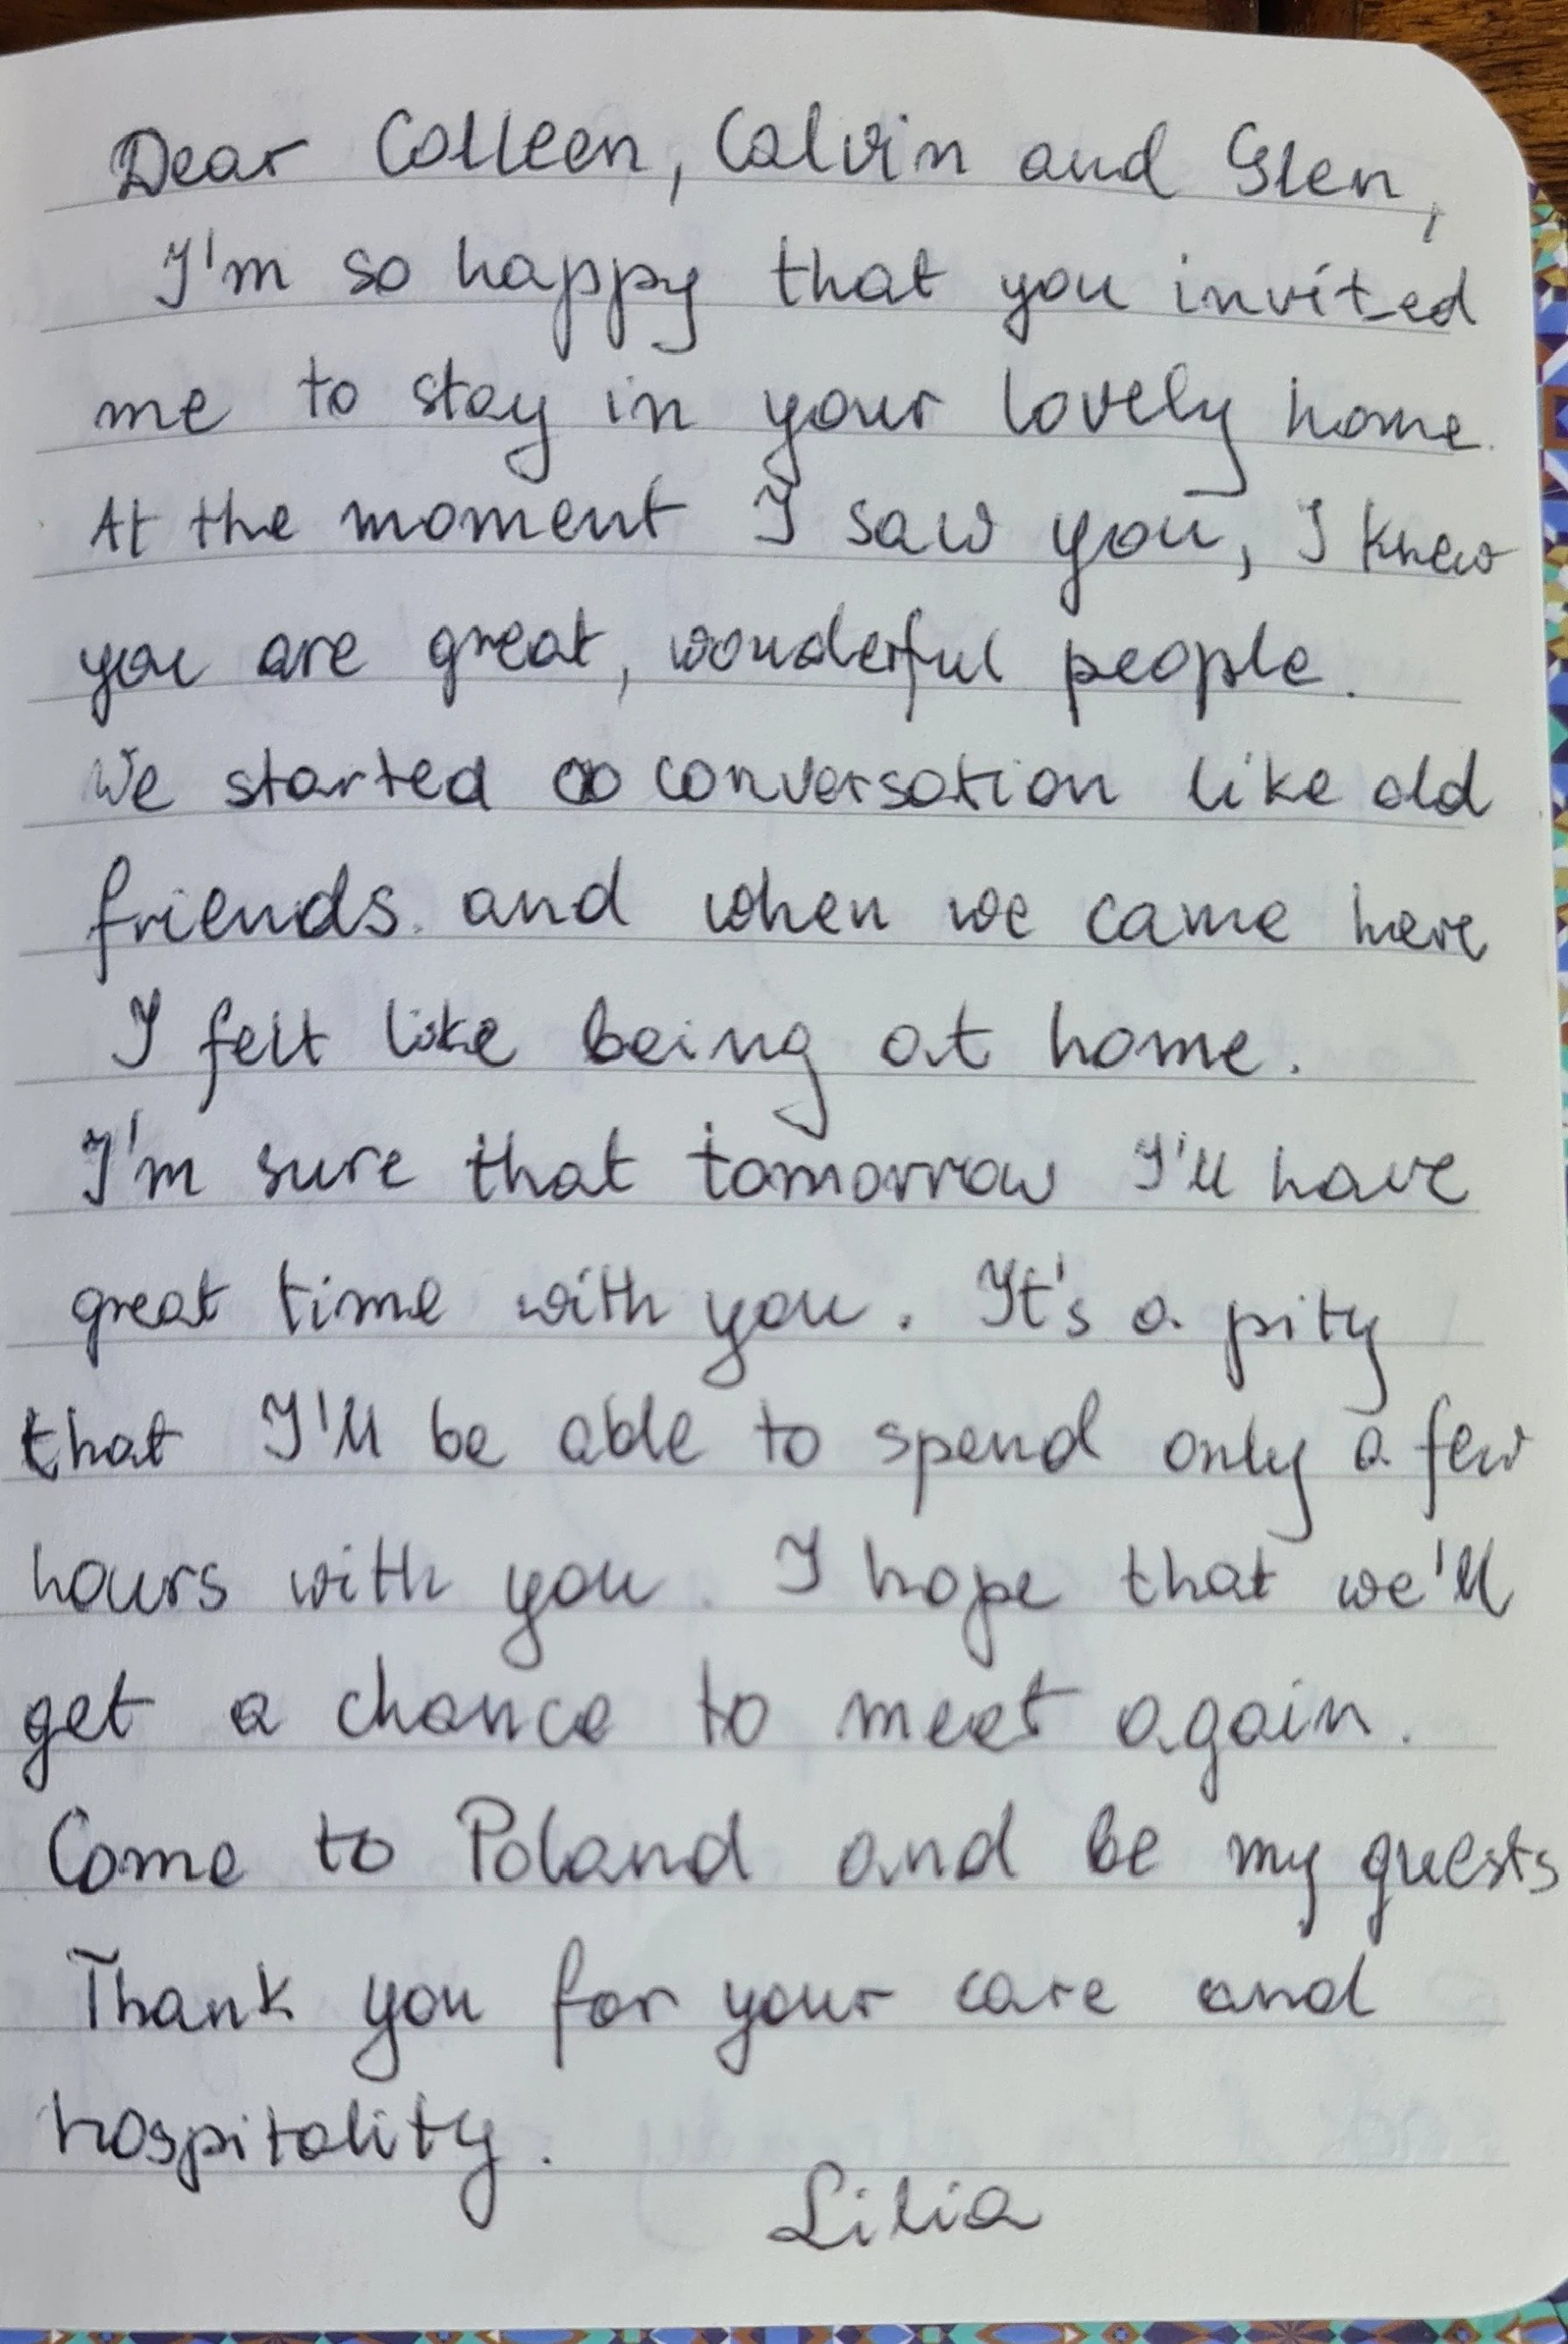 Dear Colleen, Calvin and Glen,
I'm so happy that you invited
me to stay in your lovely home.
At the moment I saw you, I knew
you are great, wonderful people.
We started a conversation like old
friends. and when we came here
I felt like being at home.
I'm sure that tomorrow I'll have
great time with you. It's a pity
that I'll be able to spend only a few
hours with you. I hope that we'll
get a chance to meet again.
Come to Poland and be my guests
Thank you for your care and
hospitality.
Lilia